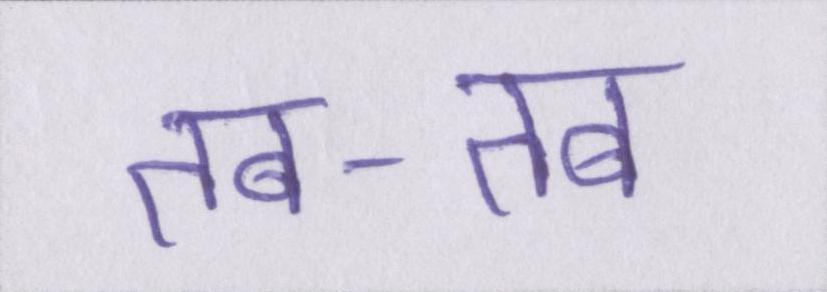 तब-तब